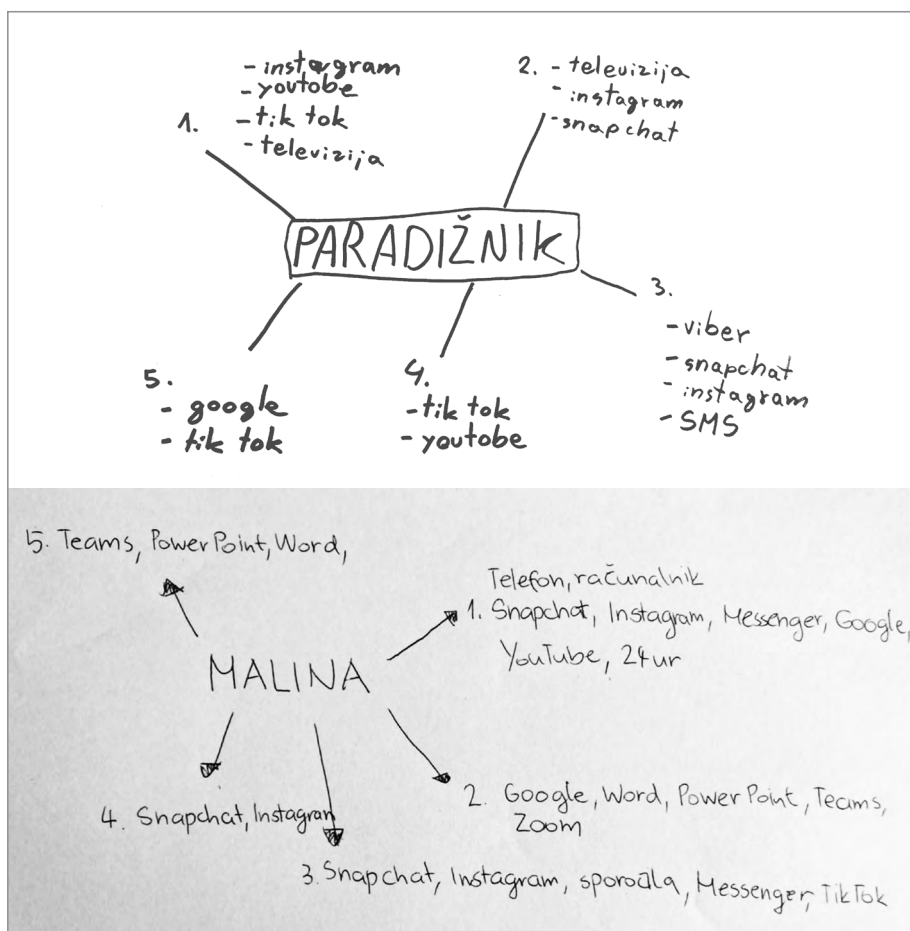 1.
- instagram
- youtobe
- tik tok
- televizija
2. - televizija
- instagram
- snapchat
PARADIŽNIK
3.
- viber
- snapchat
- instagram
- SMS
4.
- tik tok
- youtobe
5.
- google
- tik tok
5. Teams, PowerPoint, Word,
Telefon, računalnik
1. Snapchat, Instagram, Messenger, Google,
YouTube, 24ur
MALINA
2. Google, Word, PowerPoint, Teams,
Zoom
4. Snapchat, Instagram
3. Snapchat, Instagram, sporočila, Messenger, TikTok